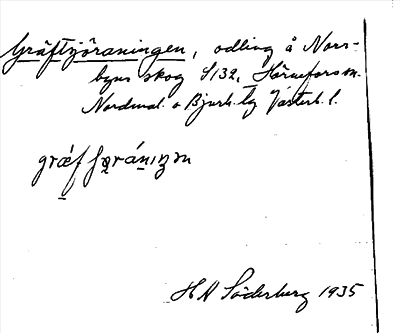 Gräftjöraningen, odling å Nors-
byns skog S132, Hörnefors sn.
Nordmal. o Bjurh. tg Västerb. l.
græf
H N Söderberg 1935